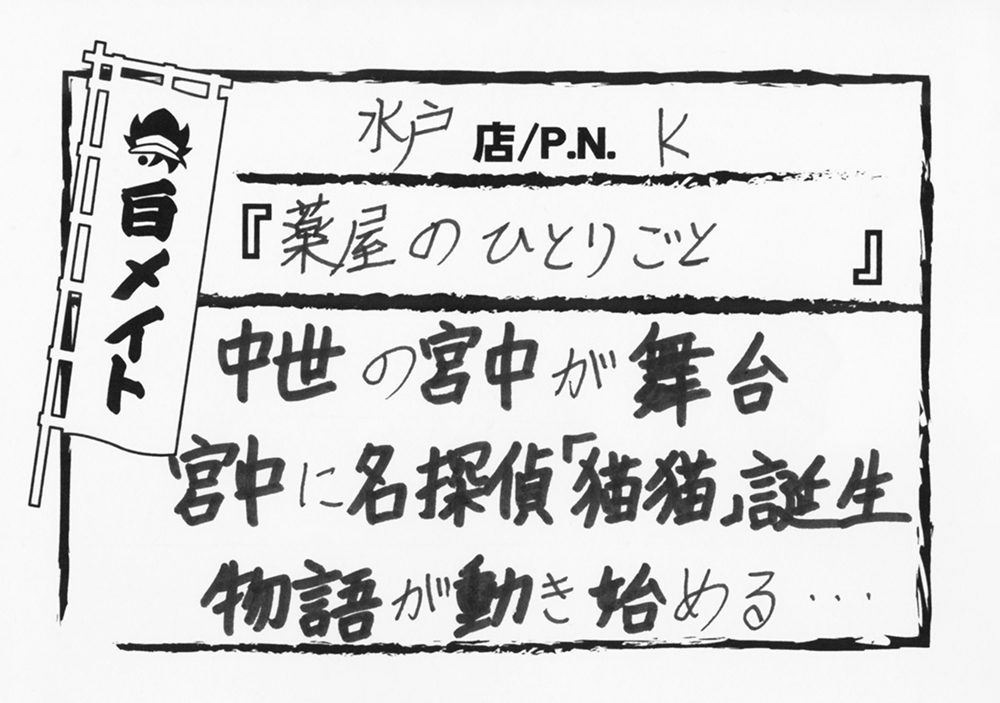 水戸 店/P.N. K
白メイト
『薬屋のひとりごと 』
中世の宮中が舞台
宮中に名探偵「猫猫」誕生
物語が動き始める…